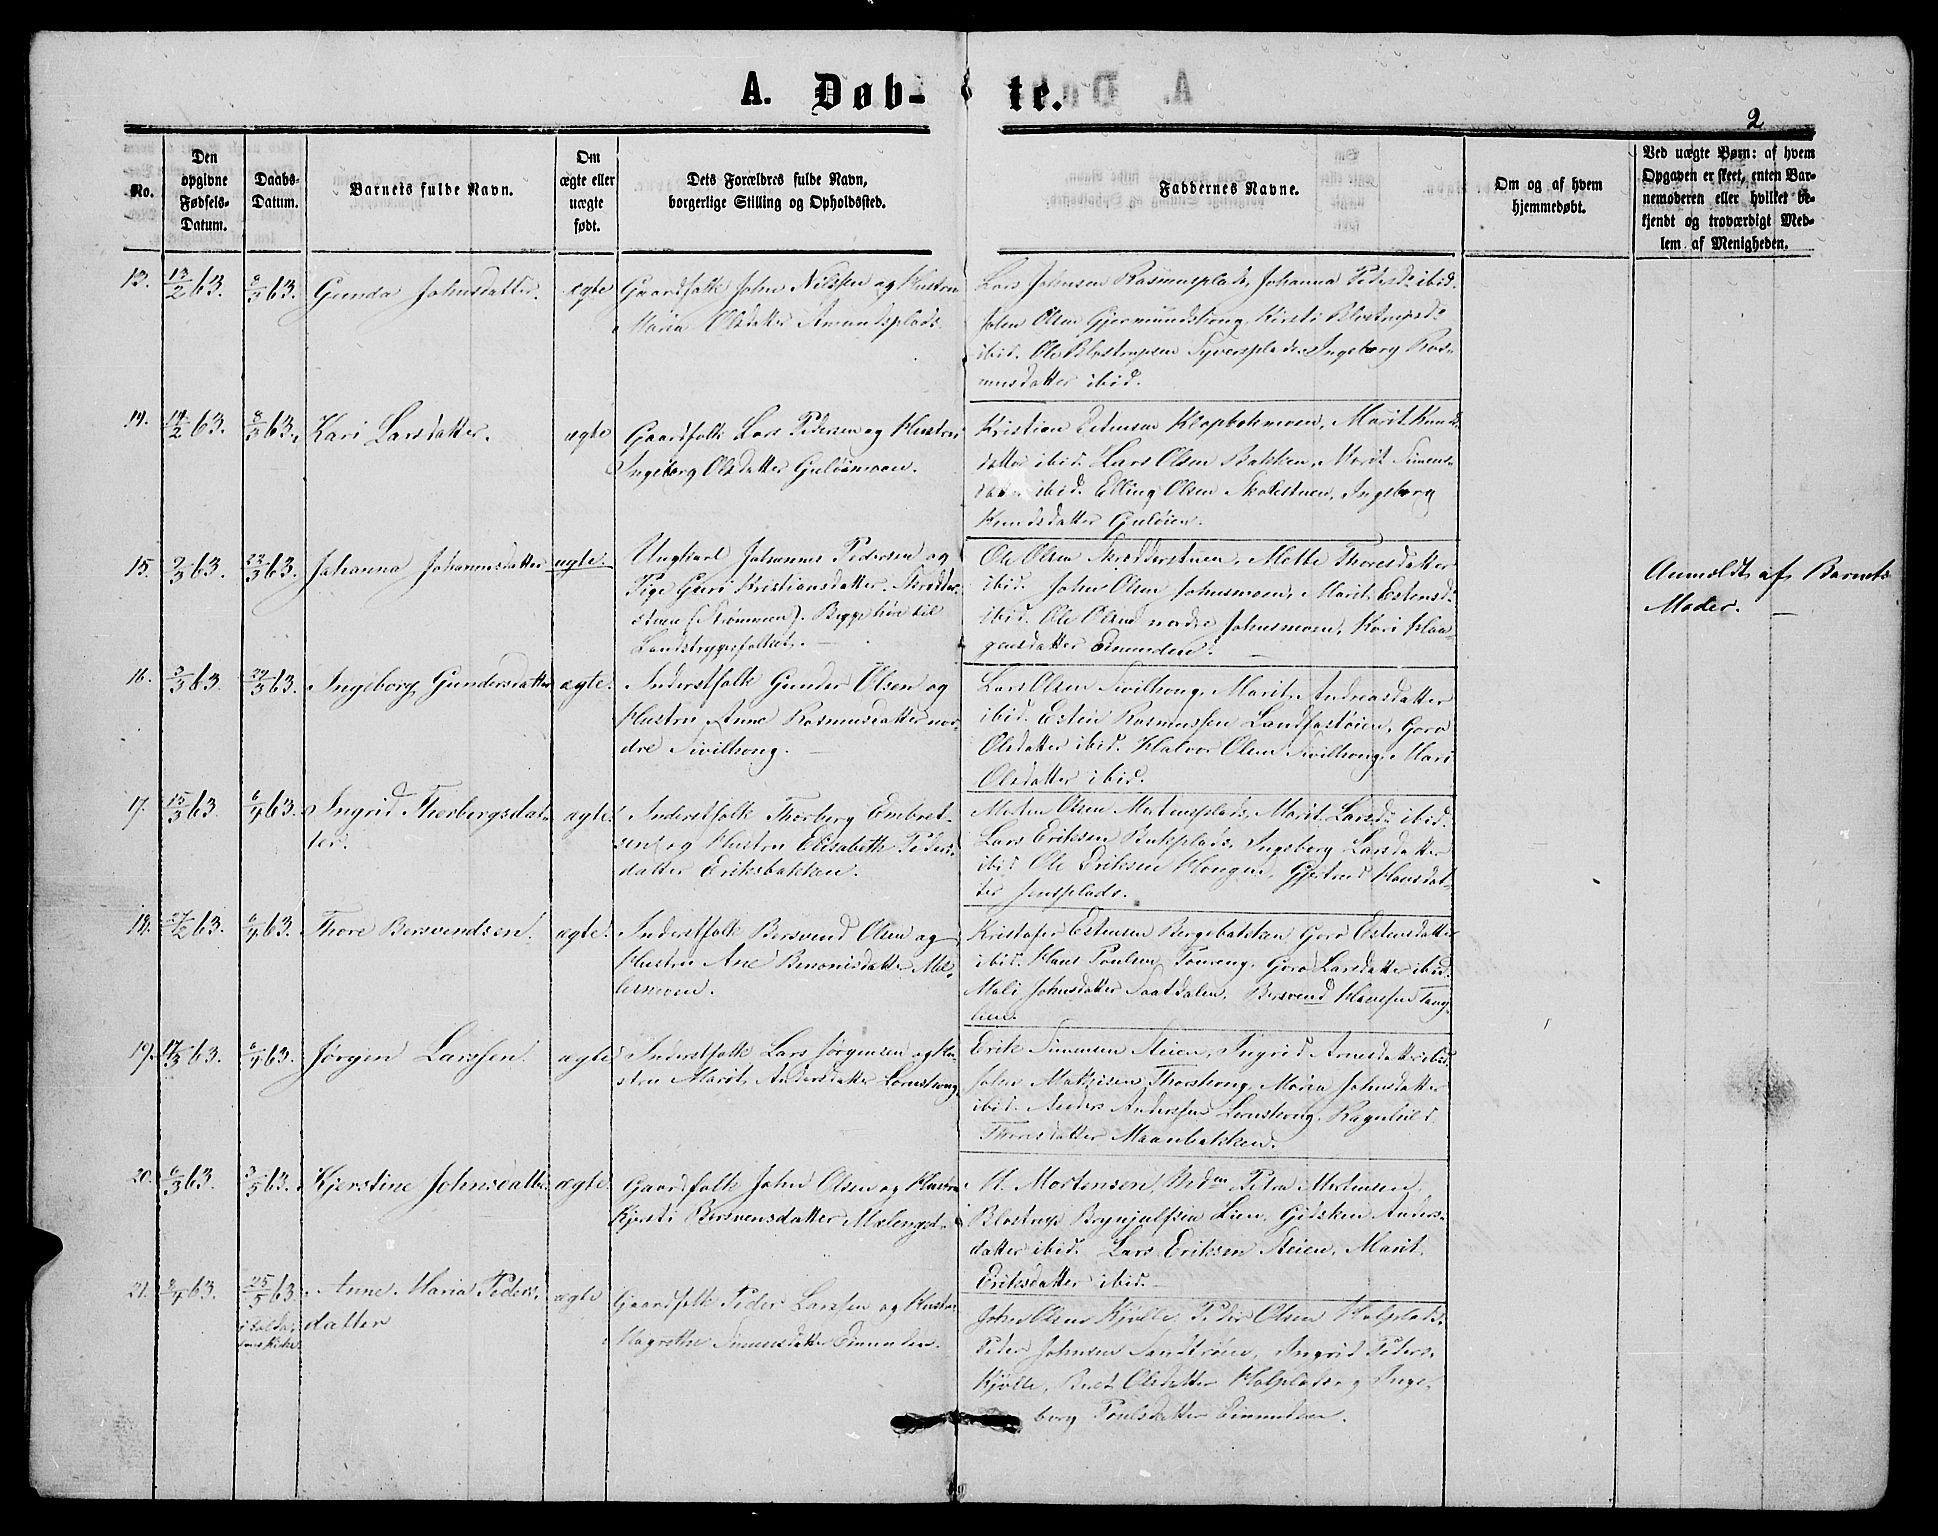 A. Døb- te.
2
No.
Den opgivne Fødsels-Datum.
Daabs-Datum.
Barnets fulde Navn.
Om ægte eller uægte født.
Dets Forældres fulde Navn, borgerlige Stilling og Opholdssted.
Faddernes Navne.
Om og af hvem hjemmedøbt.
Ved uægte Børn: af hvem Opgaven er skeet, enten Barnemoderen eller hvilket bekjendt og troværdigt Medlem af Menigheden.
13. 13/2 63. 8/3 63. Gunda Johnsdatter. ægte
Gaardfolk John Nilssen og Hustru
Maria Olsdatter Amundsplads.
Lars Johnsen Rasmusplads, Johanna Pedersd. ibid.
John Olsen Gjermundshoug, Kirsti Blostrupsd.
ibid. Ole Blostrupsen Syversplads, Ingeborg Ras-
musdatter ibid.
14. 14/2 63. 8/3 63. Kari Larsdatter. ægte
Gaardfolk Lars Pedersen og Hustru
Ingeborg Olsdatter Guløimoen.
Kristian Estensen Klopbakmoen, Marit Knuds-
datter ibid. Lars Olsen Bakken, Marit Simens-
datter ibid. Elling Olsen Skolestuen, Ingeborg
Knudsdatter Guløien.
15. 2/3 63. 22/3 63. Johanna Johannesdatter uægte.
Ungkarl Johannes Pedersen og
Pige Guri Kristiansdatter Skrædder-
stuen (Strømmen). Begge høre til
Landstrygerfolket.
Ole Olsen Skrædderstuen, Mette Thoresdatter
ibid. John Olsen Johnsmoen, Marit Estensd.
ibid. Ole Olsen nordre Johnsmoen, Kari Haa-
gensdatter Eimunden.
Anmeldt af Barnets
Moder.
16. 3/3 63. 29/3 63. Ingeborg Gundersdatter ægte.
Inderstfolk Gunder Olsen og
Hustru Anne Rasmusdatter nor-
dre Sivilhoug.
Lars Olsen Sivilhoug, Marit Andreasdatter
ibid. Esten Rasmussen Landfastøien, Goro
Olsdatter ibid. Halvor Olsen Sivilhoug, Mari
Olsdatter ibid.
17. 15/3 63 6/4 63. Ingrid Thorbergsdat-
ter. ægte
Inderstfolk Thorberg Embret-
sen og Hustru Elisabeth Peders-
datter Eriksbakken.
Morten Olsen Mortensplads, Marit Larsd. ibid.
Lars Eriksen Bakplads, Ingeborg Larsdatter
ibid. Ole Eriksen Hougen, Gjertrud Hansdat-
ter Jensplads.
18. 27/2 63. 6/4 63. Thore Bersvendsen. ægte.
Inderstfolk Bersvend Olsen og
Hustru Ane Benonisdatter Mel-
lesmoen.
Kristofer Estensen Bergebakken, Goro Estensdatter
ibid. Hans Poulsen Toueng, Goro Larsdatter ibid.
Mali Johnsdatter Saatdalen, Bersvend Hanssen Tang-
lien.
19. 17/3 63. 6/4 63. Jørgen Larssen. ægte
Inderstfolk Lars Jørgensen og Hu-
stru Marit Andersdatter Lornshoug.
Erik Simensen Steien, Ingrid Arnesdatter ibid.
John Mathisen Thorshoug, Maria Johnsdatter
ibid. Anders Anderssen Lornshoug, Ragnhild
Thoresdatter Maanbakken.
20. 6/3 63. 3/5 63. Kjerstine Johnsdatter ægte.
Gaardfolk John Olsen og Hustru
Kjersti Bersvensdatter Mælengst.
H. Mortensen, Md.m Petra Mortensen,
Blostrup Brynjulfsen Lien, Gidsken Anders-
datter ibid. Lars Eriksen Steien, Marit
Eriksdatter ibid.
21. 2/4 63. 25/5 63 Anne Maria Peders-
datter ægte
Gaardfolk Peder Larssen og Hustru
Magrethe Simensdatter Eimunden.
John Olsen Kjølle, Peder Olsen Halplads,
Peder Johnsen Sandtrøen, Ingrid Peders.
Kjølle, Berit Olsdatter Halplads og Inge-
borg Poulsdatter Eimunden.